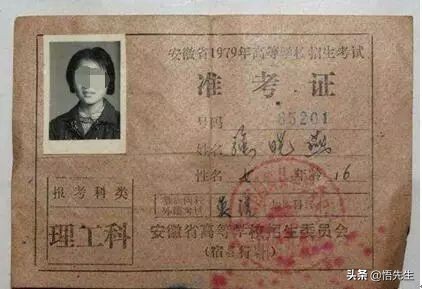 安徽省1979年高等学校招生考试
准考证
号码 65201
姓名
性名 女 年龄 16
报考科类
理工科
英语
安徽省高等学校招生委员会
头条 @悟先生